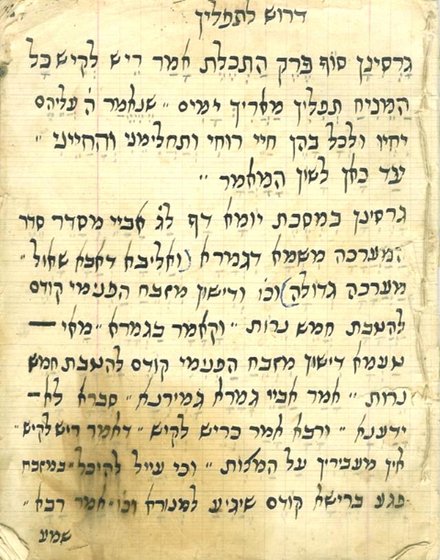 דרוש לתפלין
גרסינן סוף פרק התכלת אמר ריש לקיש כל
המניח תפלין מאריך ימים ״ שנאמר ה׳ עליהם
יחיו ולכל בהן חיי רוחי ותחלימני והחייני ״
עד כאן לשון המאמר ״
גרסינן במסכת יומא דף לג׳ אביי מסדר סדר
המערכה משמא דגמרא (ואליבא דאבא שאול ״
מערכה גדולה) וכו׳ ודישון מזבח הפנימי קודם
להטבת חמש נרות ״ וקאמר בגמרא ״ מאי —
טעמא דישון מזבח הפנימי קודם להטבת חמש
נרות ״ אמר אביי גמרא גמירנא ״ סברא לא —
ידענא ״ ורבא אמר כריש לקיש ״ דאמר ריש לקיש ״
אין מעבירין על המצות ״ וכי עייל להיכל ״ במזבח
פגע ברישא קודם שיגיע למנורא וכו׳ אמר רבא ״
שמע